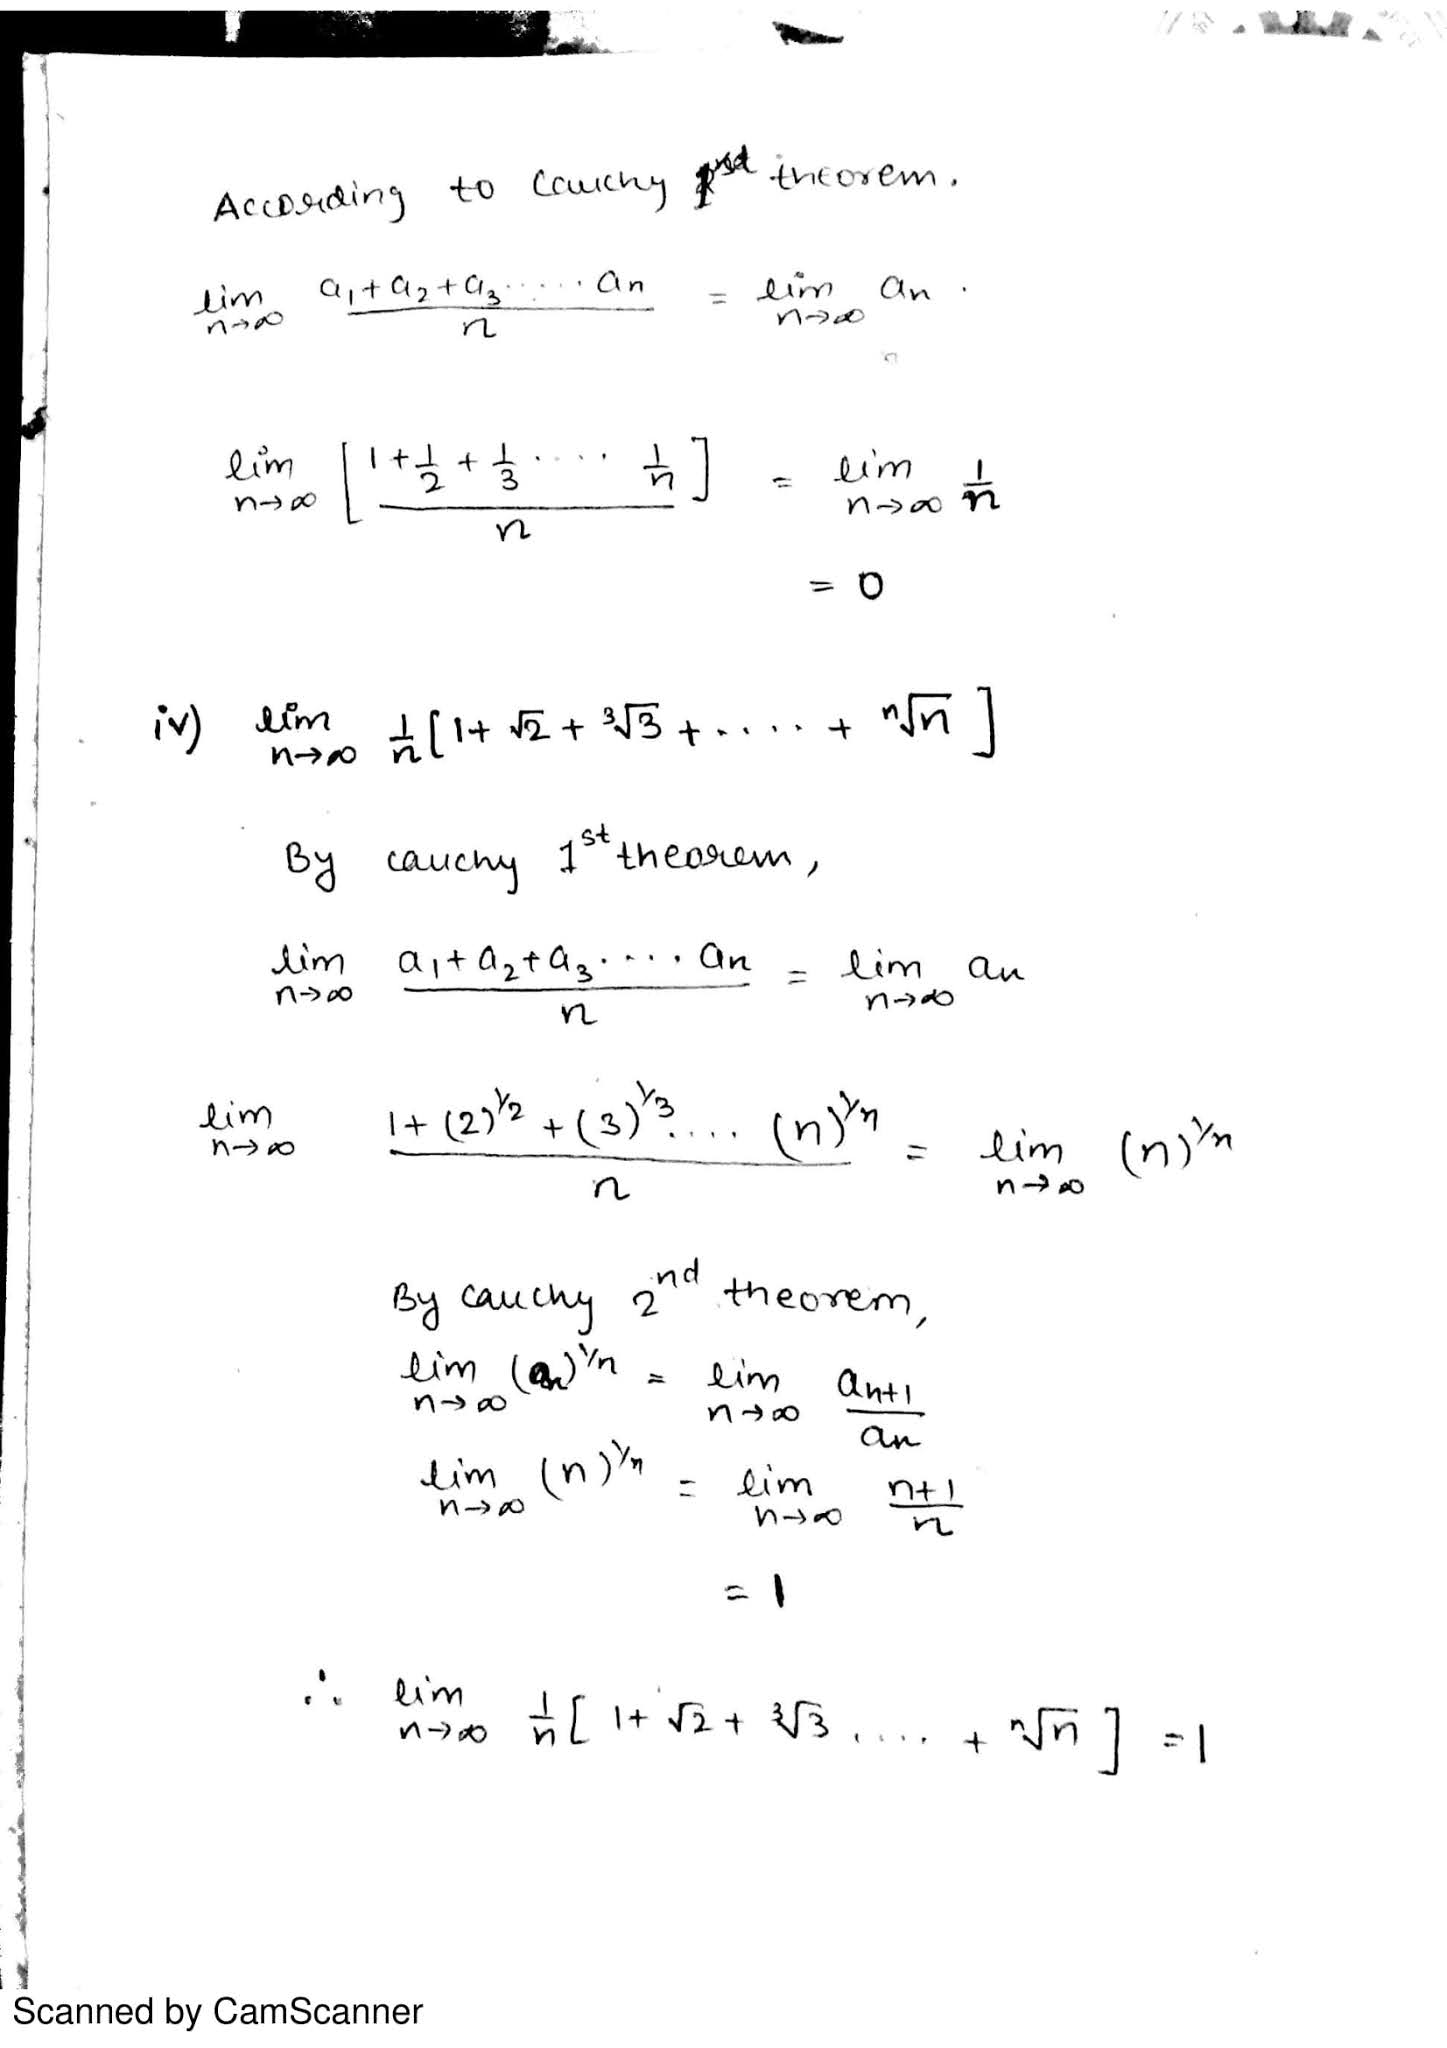 According to Cauchy 1st theorem.
lim n→∞ (a₁+a₂+a₃......an)/n = lim n→∞ an.
lim n→∞ [(1+1/2+1/3.....1/n)/n] = lim n→∞ 1/n
= 0
iv) lim n→∞ 1/n[1+√2+³√3+.....+ⁿ√n]
By cauchy 1st theorem,
lim n→∞ (a₁+a₂+a₃.....an)/n = lim n→∞ an
lim n→∞ (1+(2)^1/2+(3)^1/3....(n)^1/n)/n = lim n→∞ (n)^1/n
By cauchy 2nd theorem,
lim n→∞ (an)^1/n = lim n→∞ an+1/an
lim n→∞ (n)^1/n = lim n→∞ (n+1)/n
= 1
∴ lim n→∞ 1/n[1+√2+³√3.....+ⁿ√n] = 1
Scanned by CamScanner